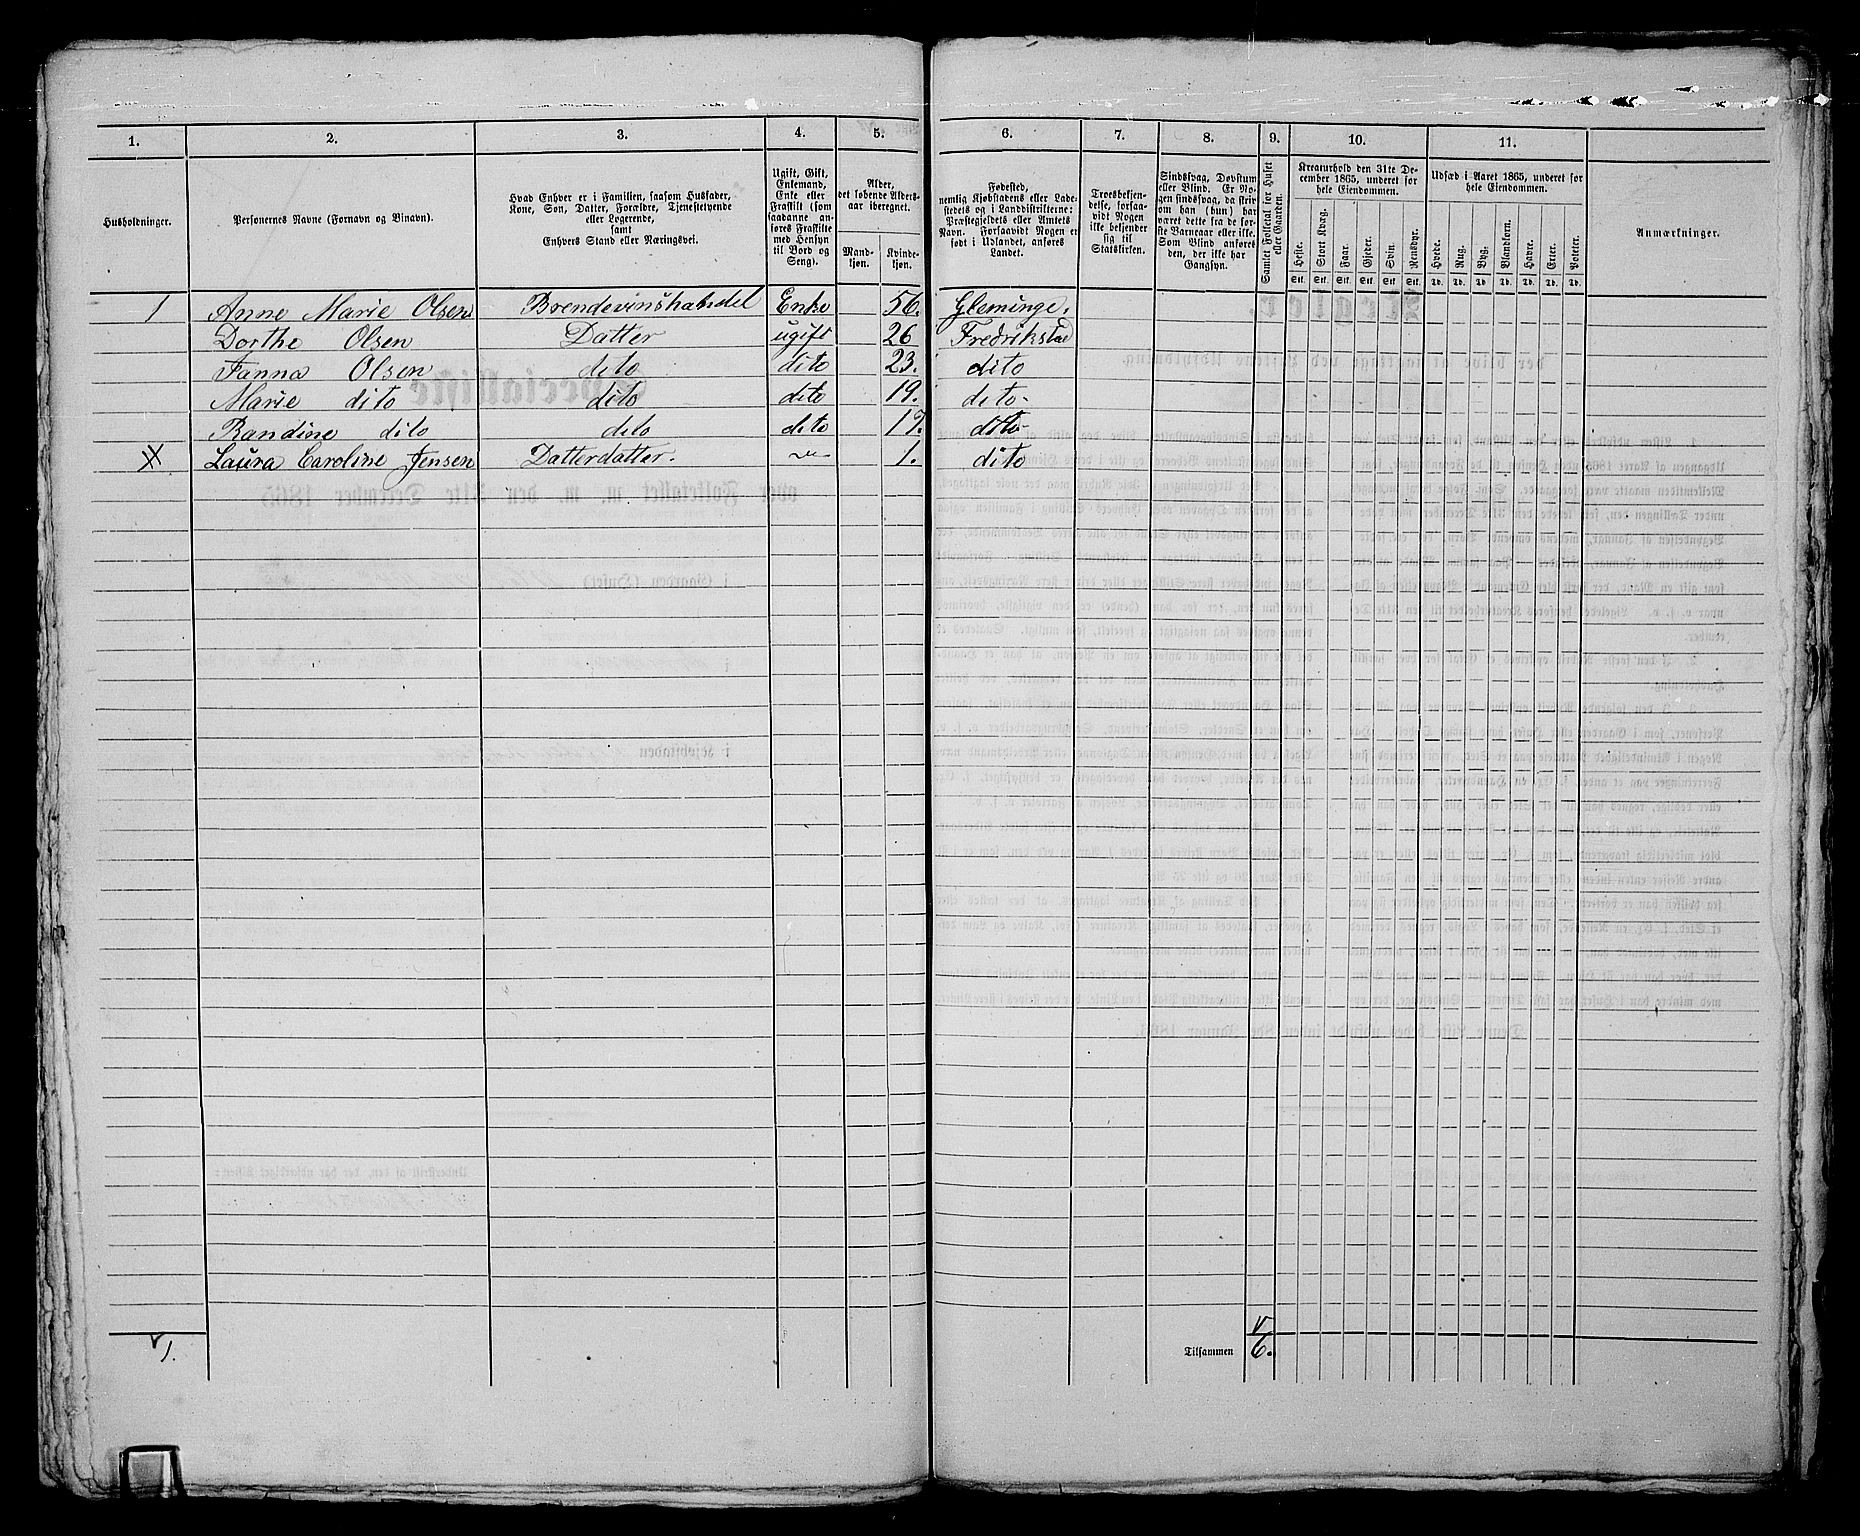 1. 2. 3. 4. 5. 6. 7. 8. 9. 10. 11.
Husholdninger.
Personernes Navne (Fornavn og Binavn).
Hvad Enhver er i Familien, saasom Husfader,
Kone, Søn, Datter, Forældre, Tjenestetyende
eller Logerende,
samt
Enhvers Stand eller Næringsvei.
Ugift, Gift,
Enkemand,
Enke eller
Fraskilt (som
saadanne an-
føres Fraskilte
med Hensyn
til Bord og
Seng).
Alder,
det løbende Alders-
aar iberegnet.
Mand-
kjøn.
Kvinde-
kjøn.
Fødested,
nemlig Kjøbstadens eller Lade-
stedets og i Landdistrikterne:
Præstegjeldets eller Amtets
Navn. Forsaavidt Nogen er
født i Udlandet, anføres
Landet.
Troesbekjen-
delse, forsaa-
vidt Nogen
ikke bekjender
sig til
Statskirken.
Sindssvag, Døvstum
eller Blind. Er No-
gen sindssvag, da skriv
om han (hun) har
været dette fra de før-
ste Barneaar eller ikke.
Som Blind anføres
den, der ikke har
Gangsyn.
Samlet Folketal for Huset
eller Gaarden.
Kreaturhold den 31te De-
cember 1865, underet for
hele Eiendommen.
Heste.
Stort Kvæg.
Faar.
Gjeder.
Svin.
Rensdyr.
Stk. Stk. Stk. Stk. Stk. Stk.
Udsæd i Aaret 1865, underet for
hele Eiendommen.
Hvede.
Rug.
Byg.
Blandkorn.
Havre.
Erter.
Poteter.
Td. Td. Td. Td. Td. Td. Td.
Anmærkninger.
1 Anne Marie Olsen Brendevinshandel Enke 56. Gleminge.
Dorthe Olsen Datter ugift 26 Fredrikstad
Fanna Olsen dito dito 23. dito
Marie dito dito dito 19. dito
Randine dito dito dito 17. dito
Laura Caroline Jensen Datterdatter. 1. dito
1.
Tilsammen 6.